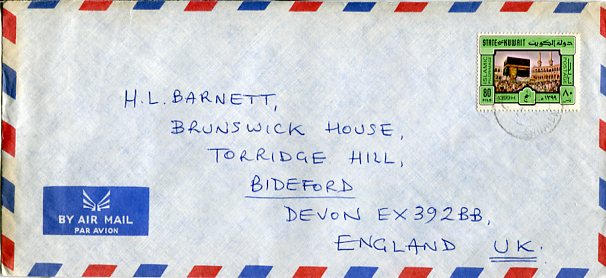 STATE OF KUWAIT دولة الكويت
ISLAMIC
80
FILS
1399H
١٣٩٩هـ
٨٠
H.L. BARNETT,
BRUNSWICK HOUSE,
TORRIDGE HILL,
BIDEFORD
DEVON EX392BB,
ENGLAND UK.
BY AIR MAIL
PAR AVION